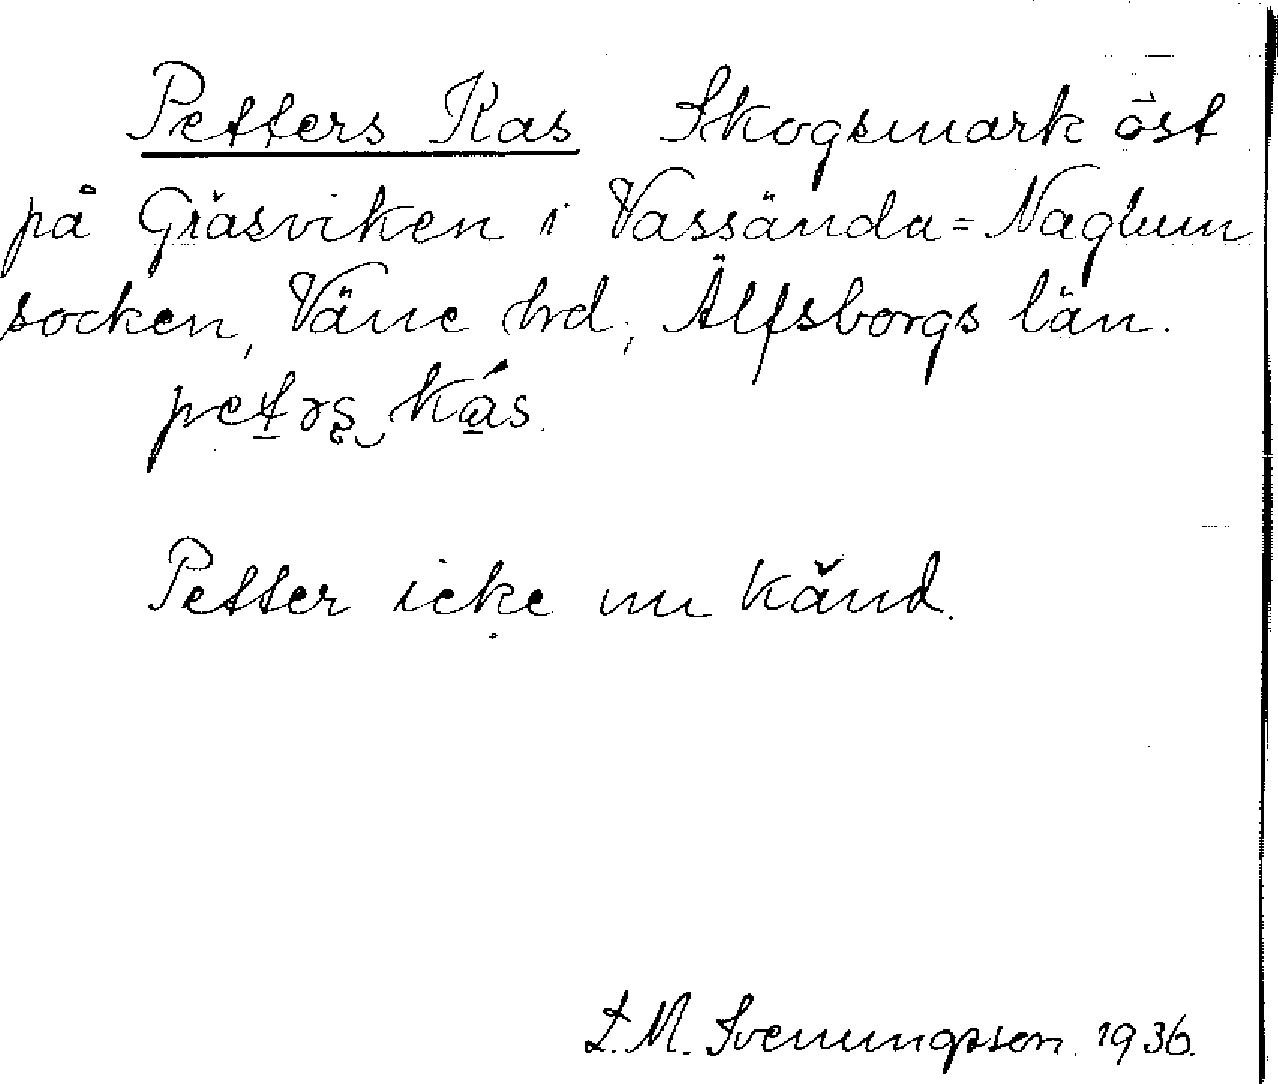 Petters Kas Skogsmark öst
på Gräsviken i Vassända=Naglum
socken, Väne hrd, Älfsborgs län.
petrs kás.
Petter icke nu känd.
L. M. Svenungsson. 1936.